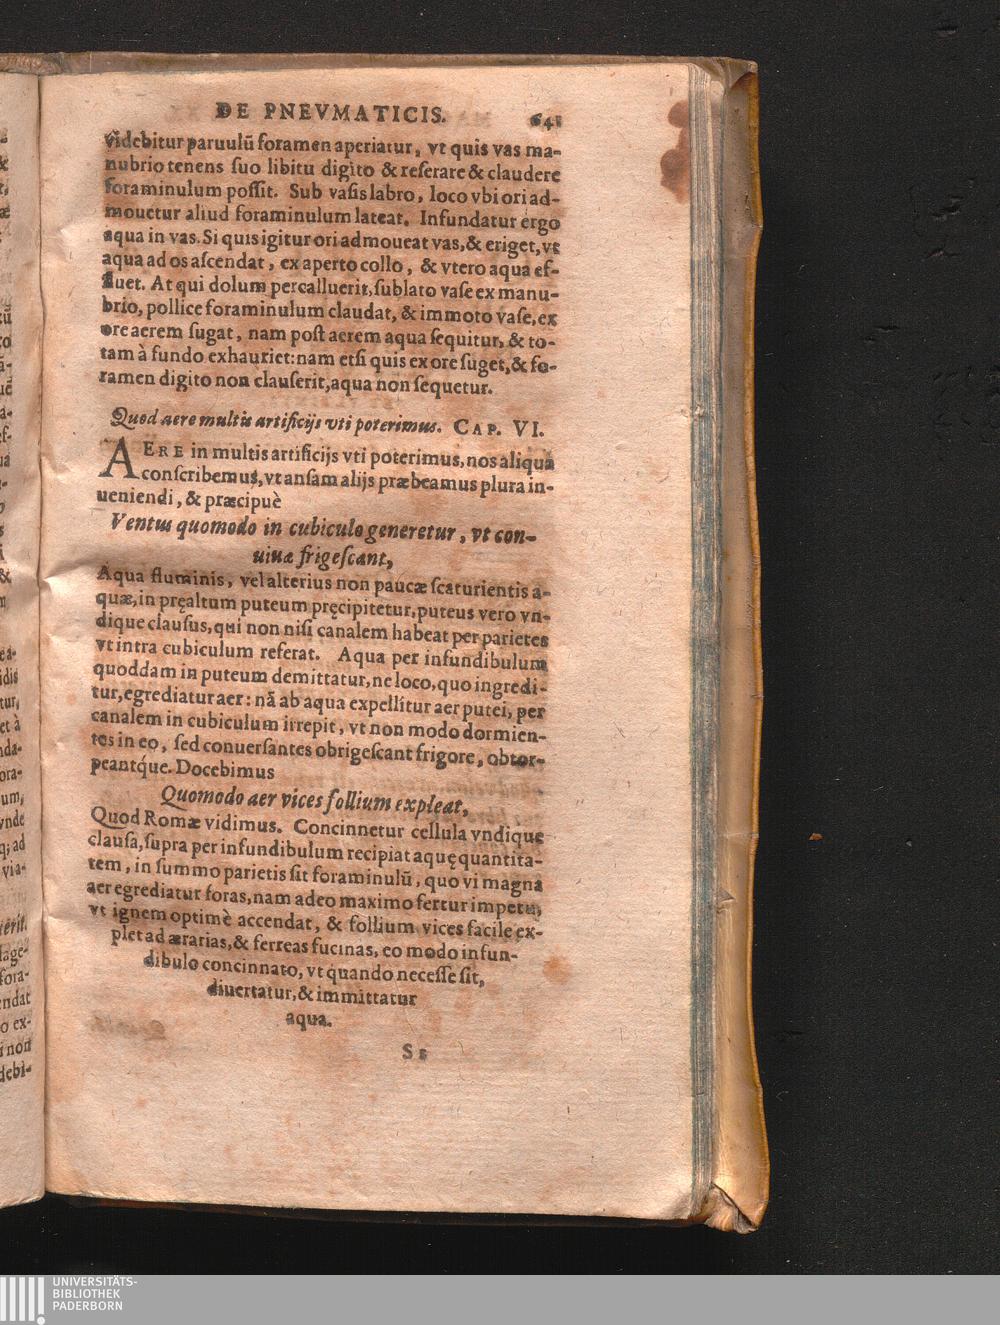 DE PNEVMATICIS. 641
videbitur paruulũ foramen aperiatur, vt quis vas ma-
nubrio tenens suo libitu digito & reserare & claudere
foraminulum possit. Sub vasis labro, loco vbi ori ad-
mouetur aliud foraminulum lateat. Infundatur ergo
aqua in vas. Si quis igitur ori admoueat vas, & eriget, vt
aqua ad os ascendat, ex aperto collo, & vtero aqua ef-
fluet. At qui dolum percalluerit, sublato vase ex manu-
brio, pollice foraminulum claudat, & immoto vase, ex
ore aerem sugat, nam post aerem aqua sequitur, & to-
tam à fundo exhauriet: nam etsi quis ex ore suget, & fo-
ramen digito non clauserit, aqua non sequetur.
Quod aere multis artificijs vti poterimus. CAP. VI.
AERE in multis artificijs vti poterimus, nos aliqua
conscribemus, vt ansam alijs præbeamus plura in-
ueniendi, & præcipuè
Ventus quomodo in cubiculo generetur, vt con-
uiuæ frigescant,
Aqua fluminis, vel alterius non paucæ scaturientis a-
quæ, in pręaltum puteum pręcipitetur, puteus vero vn-
dique clausus, qui non nisi canalem habeat per parietes
vt intra cubiculum referat. Aqua per infundibulum
quoddam in puteum demittatur, ne loco, quo ingredi-
tur, egrediatur aer: nã ab aqua expellitur aer putei, per
canalem in cubiculum irrepit, vt non modo dormien-
tes in eo, sed conuersantes obrigescant frigore, obtor-
peantq́ue. Docebimus
Quomodo aer vices follium expleat,
Quod Romæ vidimus. Concinnetur cellula vndique
clausa, supra per infundibulum recipiat aquę quantita-
tem, in summo parietis sit foraminulũ, quo vi magna
aer egrediatur foras, nam adeo maximo fertur impetu,
vt ignem optimè accendat, & follium vices facile ex-
plet ad ærarias, & ferreas fucinas, eo modo infun-
dibulo concinnato, vt quando necesse sit,
diuertatur, & immittatur
aqua.
S s
UNIVERSITÄTS-
BIBLIOTHEK
PADERBORN